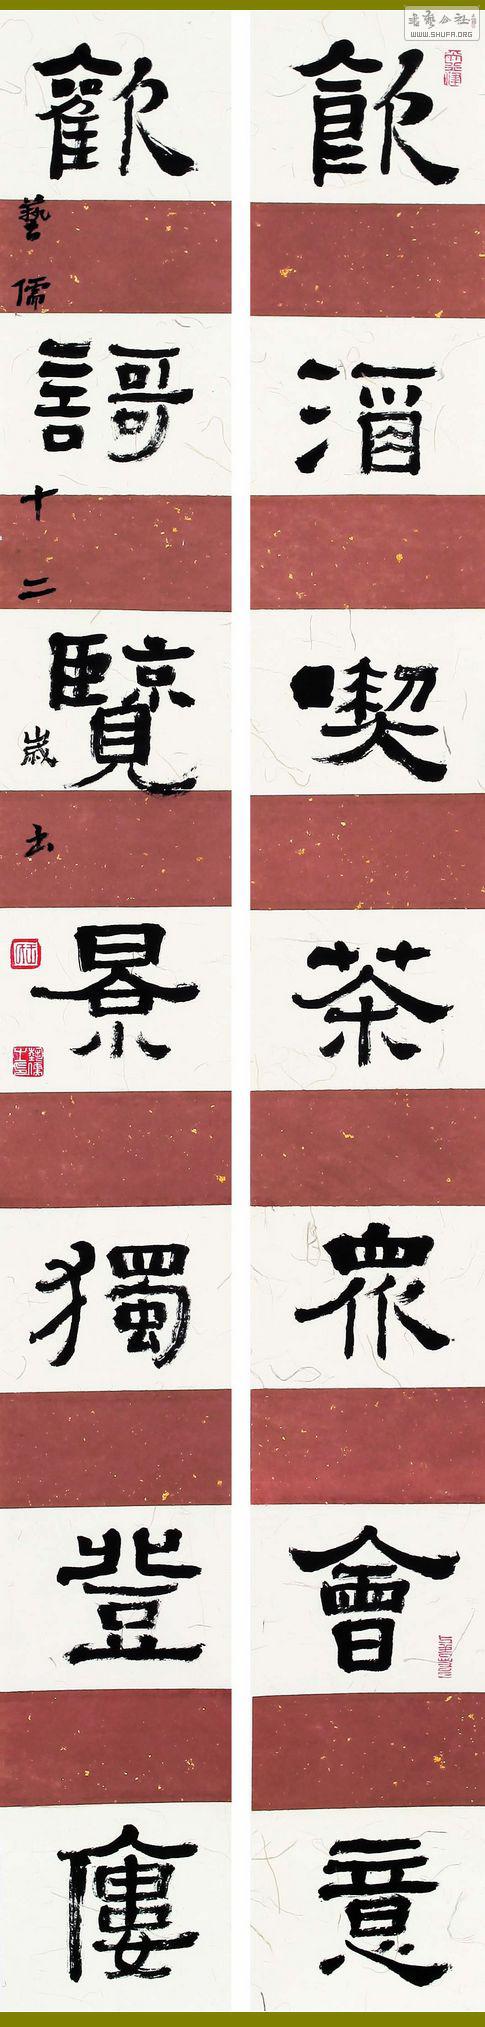 飲酒喫茶眾會意
歡謌覽景獨登僂
藝儒十二歲書
書藝公社
WWW.SHUFA.ORG